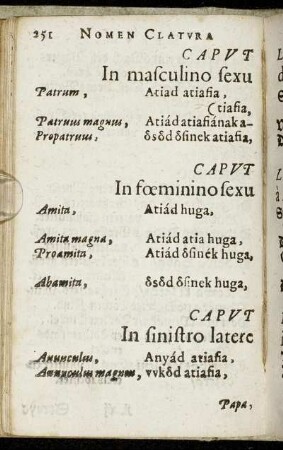 251 NOMEN CLATVRA
CAPVT
In masculino sexu
Patrum, Atiad atiafia,
(tiafia,
Patruus magnus, Atiád atiafiának a-
Propatruus, ôsôd ôsinek atiafia,
CAPVT
In fœminino sexu
Amita, Atiád huga,
Amita magna, Atiád atia huga,
Proamita, Atiád ôsinék huga,
Abamita, ôsôd ôsinek huga,
CAPVT
In sinistro latere
Auunculus, Anyád atiafia,
Auunculus magnus, vvkôd atiafia,
Papa,